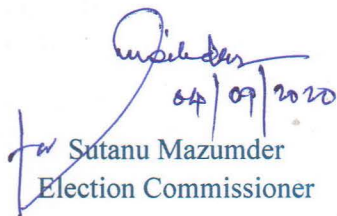 04/09/2020
for Sutanu Mazumder
Election Commissioner